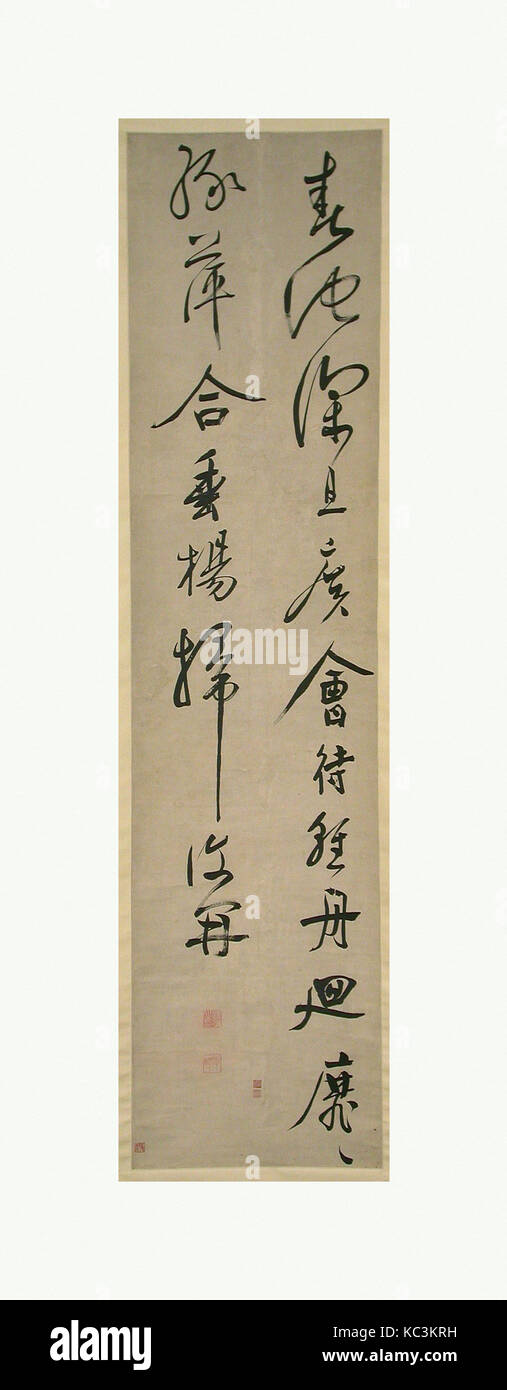 春池深且廣會待輕舟迴靡〻
綠萍合垂楊掃復開
alamy
Image ID: KC3KRH
www.alamy.com